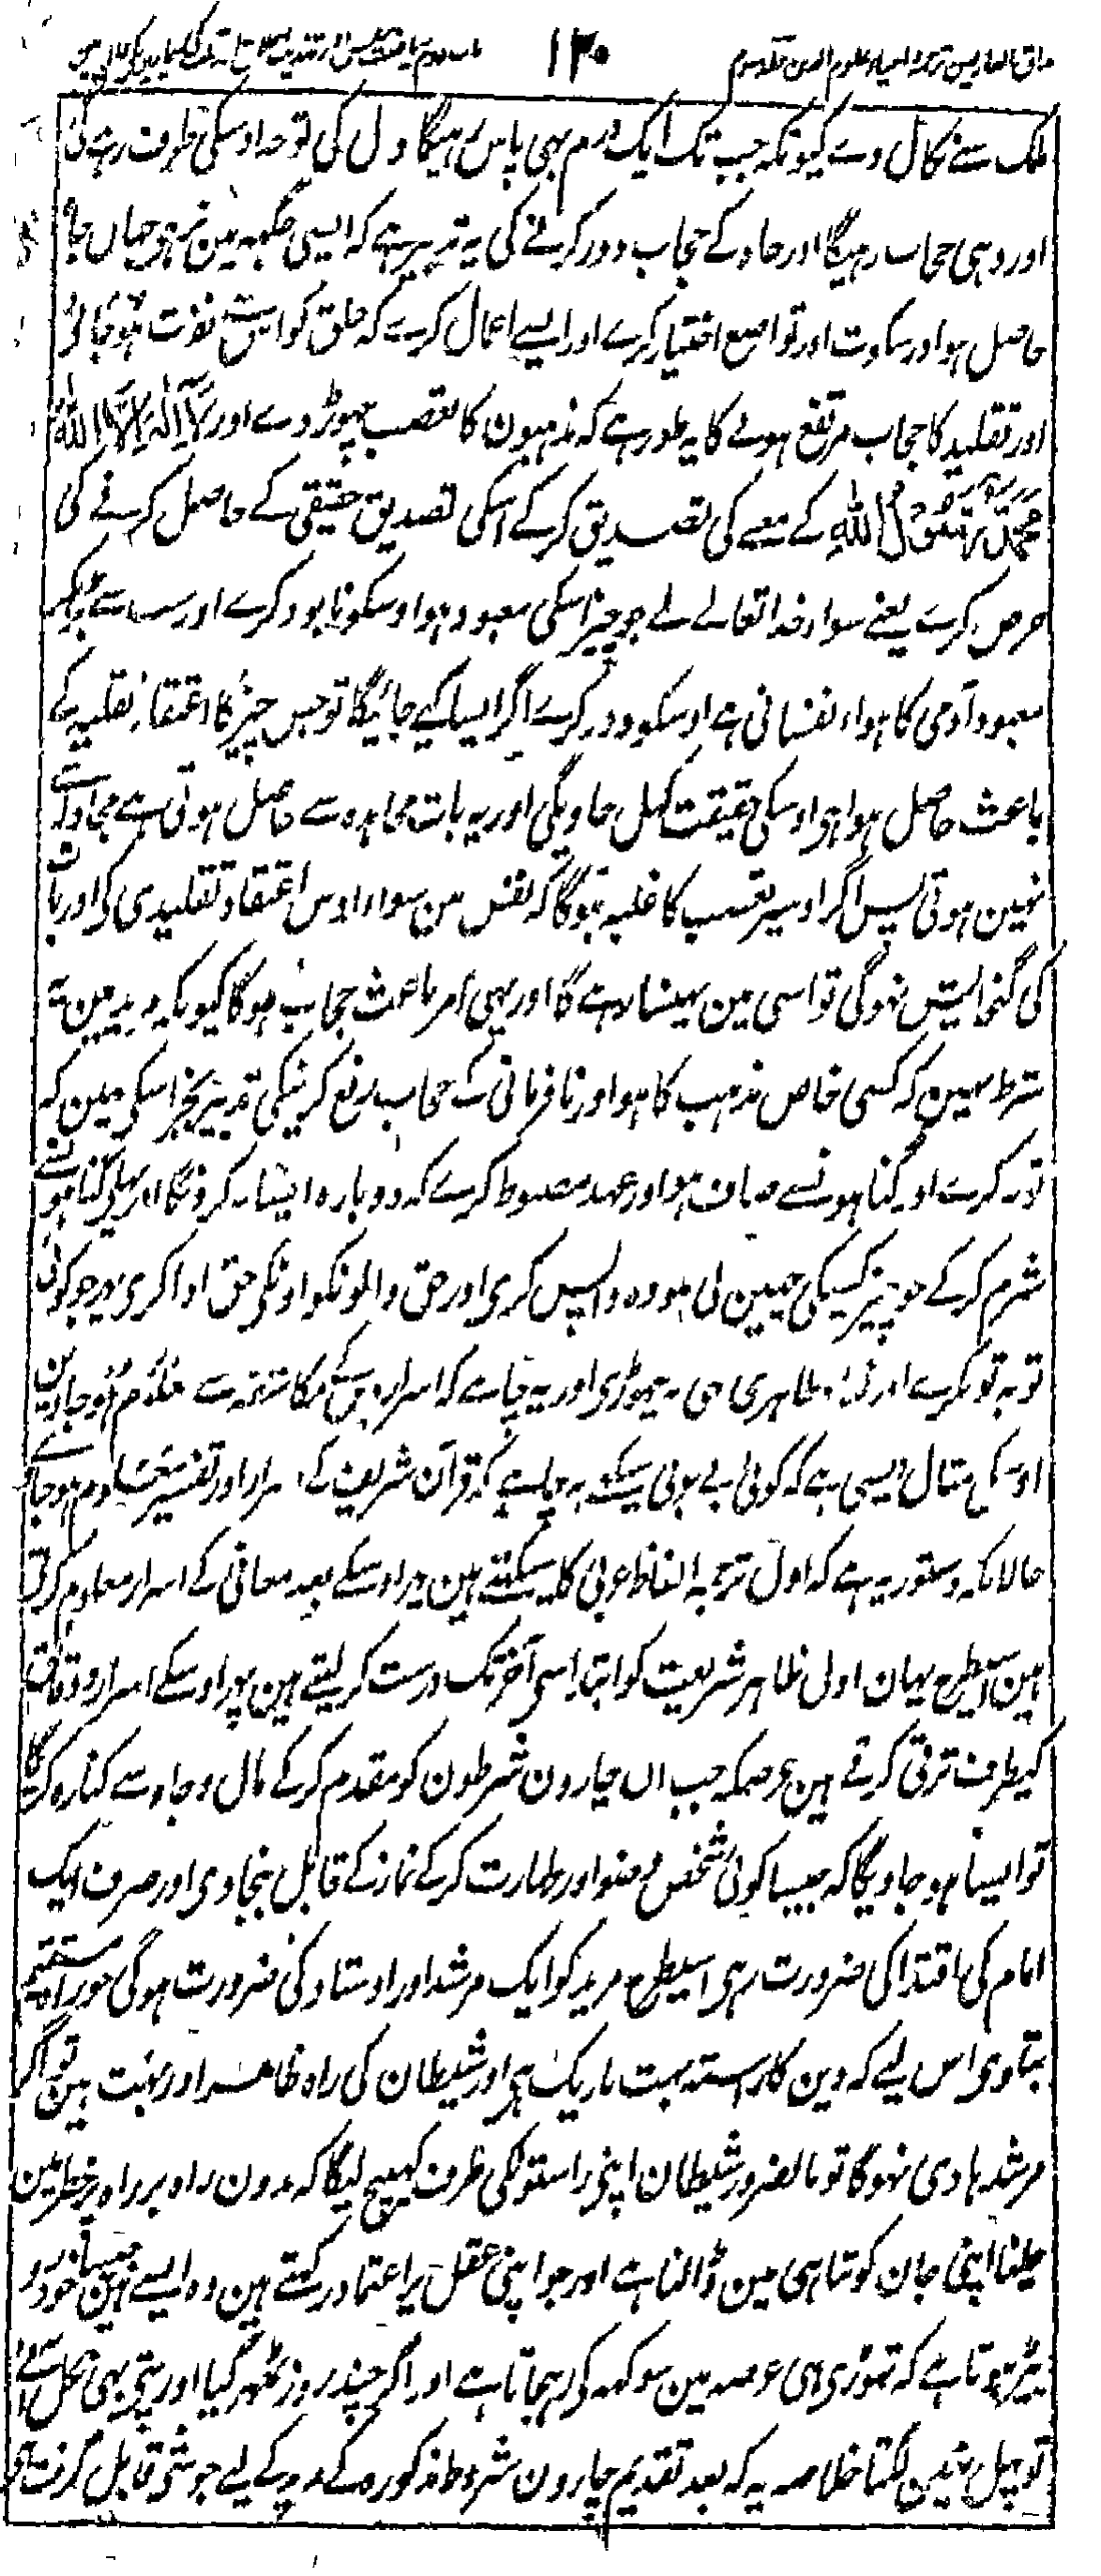 مذاق العارفین ترجمہ احیاء علوم الدین جلد سوم ۱۳۰
ملک سے نکال دے کیونکہ جب تک ایک درم بہی پاس رہیگا دل کی توجہ اوسکی طرف رہے گی
اور وہی حجاب رہیگا اور جاہ کے حجاب دور کرنے کی یہ تدبیر ہے کہ ایسی جگہہ مین نہو جہاں جاہ
حاصل ہو اور سکوت اور تواضع اختیار کرے اور ایسے اعمال کرے کہ خلق کو اس سے نفرت ہو جائے
اور تقلید کا حجاب مرتفع ہونے کا یہ طور ہے کہ مذہبون کا تعصب چہوڑ دے اور لَا اِلٰہَ اِلَّا اللّٰہُ
مُحَمَّدٌ رَّسُوْلُ اللّٰہِ کے معنے کی تصدیق کرکے اسکی تصدیق حقیقی کے حاصل کرنے کی
حرص کرے یعنے سواے خدا تعالے کے جو چیز اسکی معبود ہو اوسکو نابود کرے اور سب سے بڑاکر
معبود آدمی کا ہواے نفسانی ہے اوسکو دور کرے اگر ایسا کیے جائیگا تو جس چیز کا اعتقاد تقلید کے
باعث حاصل ہوا ہی اوسکی حقیقت کہل جاویگی اور یہ بات مجاہدہ سے حاصل ہوتی ہے مجادلہ سے
نہین ہوتی پس اگر اوسپر تعصب کا غلبہ ہوگا کہ نفس مین سواے اوس اعتقاد تقلیدی کی اور بات
کی گنجایش نہوگی تو اسی مین پہنسا رہے گا اور یہی امر باعث حجاب ہوگا کیونکہ مرید مین یہ
شرط نہین کہ کسی خاص مذہب کا ہو اور نافرمانی کے حجاب رفع کرنیکی تدبیر بجز اسکی نہین کہ
توبہ کرے اور گناہونسے صاف ہو اور عہد مضبوط کرے کہ دوبارہ ایسا نہ کرونگا اور پہلی گناہونسے
شرم کرکے جو چیز کسیکی چہین لی ہو وہ واپس کری اور حق والونکو اونکی حق ادا کری پہر جو کوئی
توبہ تو نکرے اور گناہ ظاہری بہی نہ چہوڑی اور یہ چاہے کہ اسرار دین کے مکاشفہ سے معلوم ہو جاوین
اوسکی مثال ایسی ہے کہ کوئی بے عربی سیکہے یہ چاہے کہ قرآن شریف کے اسرار اور تفسیر معلوم ہو جاے
حالانکہ دستور یہ ہے کہ اول ترجمہ الفاظ عربی کا سیکہتے ہین پہر اوسکے بعد معانی کے اسرار معلوم کرتے
ہین اسیطرح یہان اول ظاہر شریعت کو ابتدا سی آخر تک درست کر لیتے ہین پہر اوسکے اسرار و دقائق
کیطرف ترقی کرتے ہین غرضکہ جب ان چارون شرطون کو مقدم کرکے مال و جاہ سے کنارہ کریگا
تو ایسا ہو جاویگا کہ جیسا کوئی شخص وضو اور طہارت کرکے نماز کے قابل بنجاوی اور صرف ایک
امام کی اقتدا کی ضرورت رہی اسیطرح مرید کو ایک مرشد اور اوستاد کی ضرورت ہوگی جو راہ مستقیم
بتاوی اس لیے کہ دین کا رستہ بہت باریک ہی اور شیطان کی راہ ظاہر اور بہت ہین تو اگر
مرشد ہادی نہوگا تو بالضرور شیطان اپنی راستونکی طرف کہینچ لیگا کہ بدون راہ بر راہ پر خطر مین
چلنا اپنی جان کو تباہی مین ڈالنا ہے اور جو اپنی عقل پر اعتماد رکہتے ہین وہ ایسے ہین جیسا خود رو
پیڑ ہوتا ہے کہ تہوڑی ہی عرصہ مین سوکہہ کر رہجاتا ہے اور اگر چند روز ٹہر گیا اور پتی بہی نکل آئے
تو پہل نہین لگتا خلاصہ یہ کہ بعد تقدیم چارون شروط مذکورہ کے مرید کے لیے جو شی قابل گرفت ہی